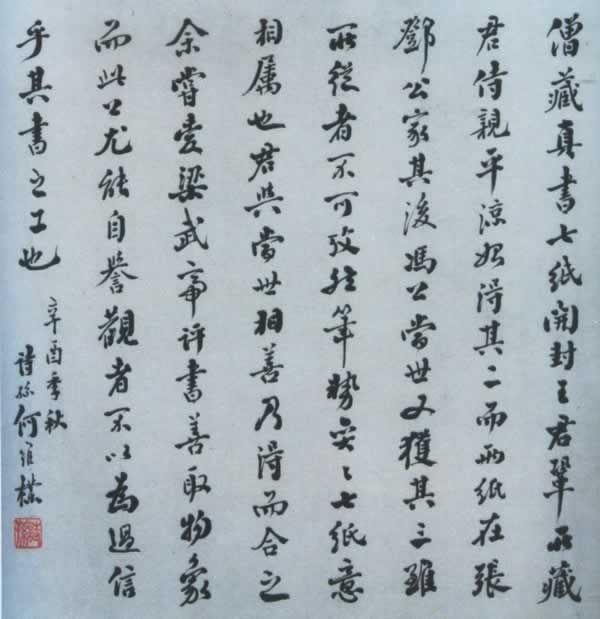 僧藏真書七紙開封王君鞏所藏
君侍親平涼始得其二而兩紙在張
鄧公家其後馮公當世又獲其三雖
所從者不可攷然筆勢奕〻七紙意
相属也君與當世相善乃得而合之
余嘗愛梁武帝評書善取物象
而此公尤能自譽觀者不以為過信
乎其書之工也
辛酉季秋
詩孫何維樸